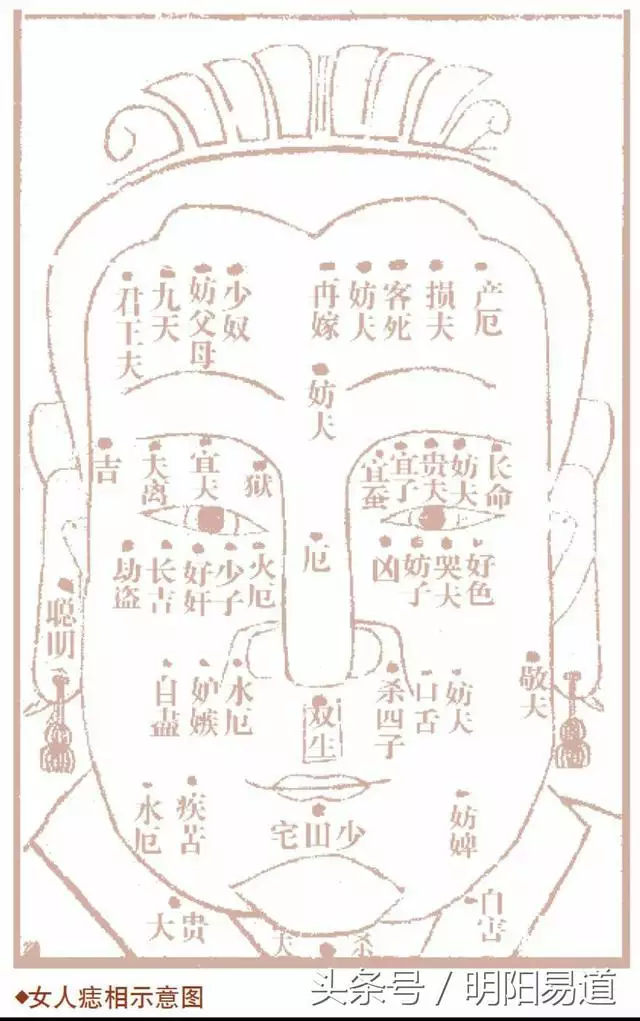 君王夫
九夫
妨父母
少奴
再嫁
妨夫
客死
损夫
产厄
妨夫
吉
夫离
宜夫
狱
宜蚕
宜子
贵夫
妨夫
长命
厄
劫盗
长吉
好奸
少子
火厄
凶
妨子
哭夫
好色
聪明
自盡
妒嫉
水厄
双生
杀四子
口舌
妨夫
敬夫
水厄
疾苦
少田宅
妨婢
贵大
杀夫
自害
◆女人痣相示意图
头条号 / 明阳易道